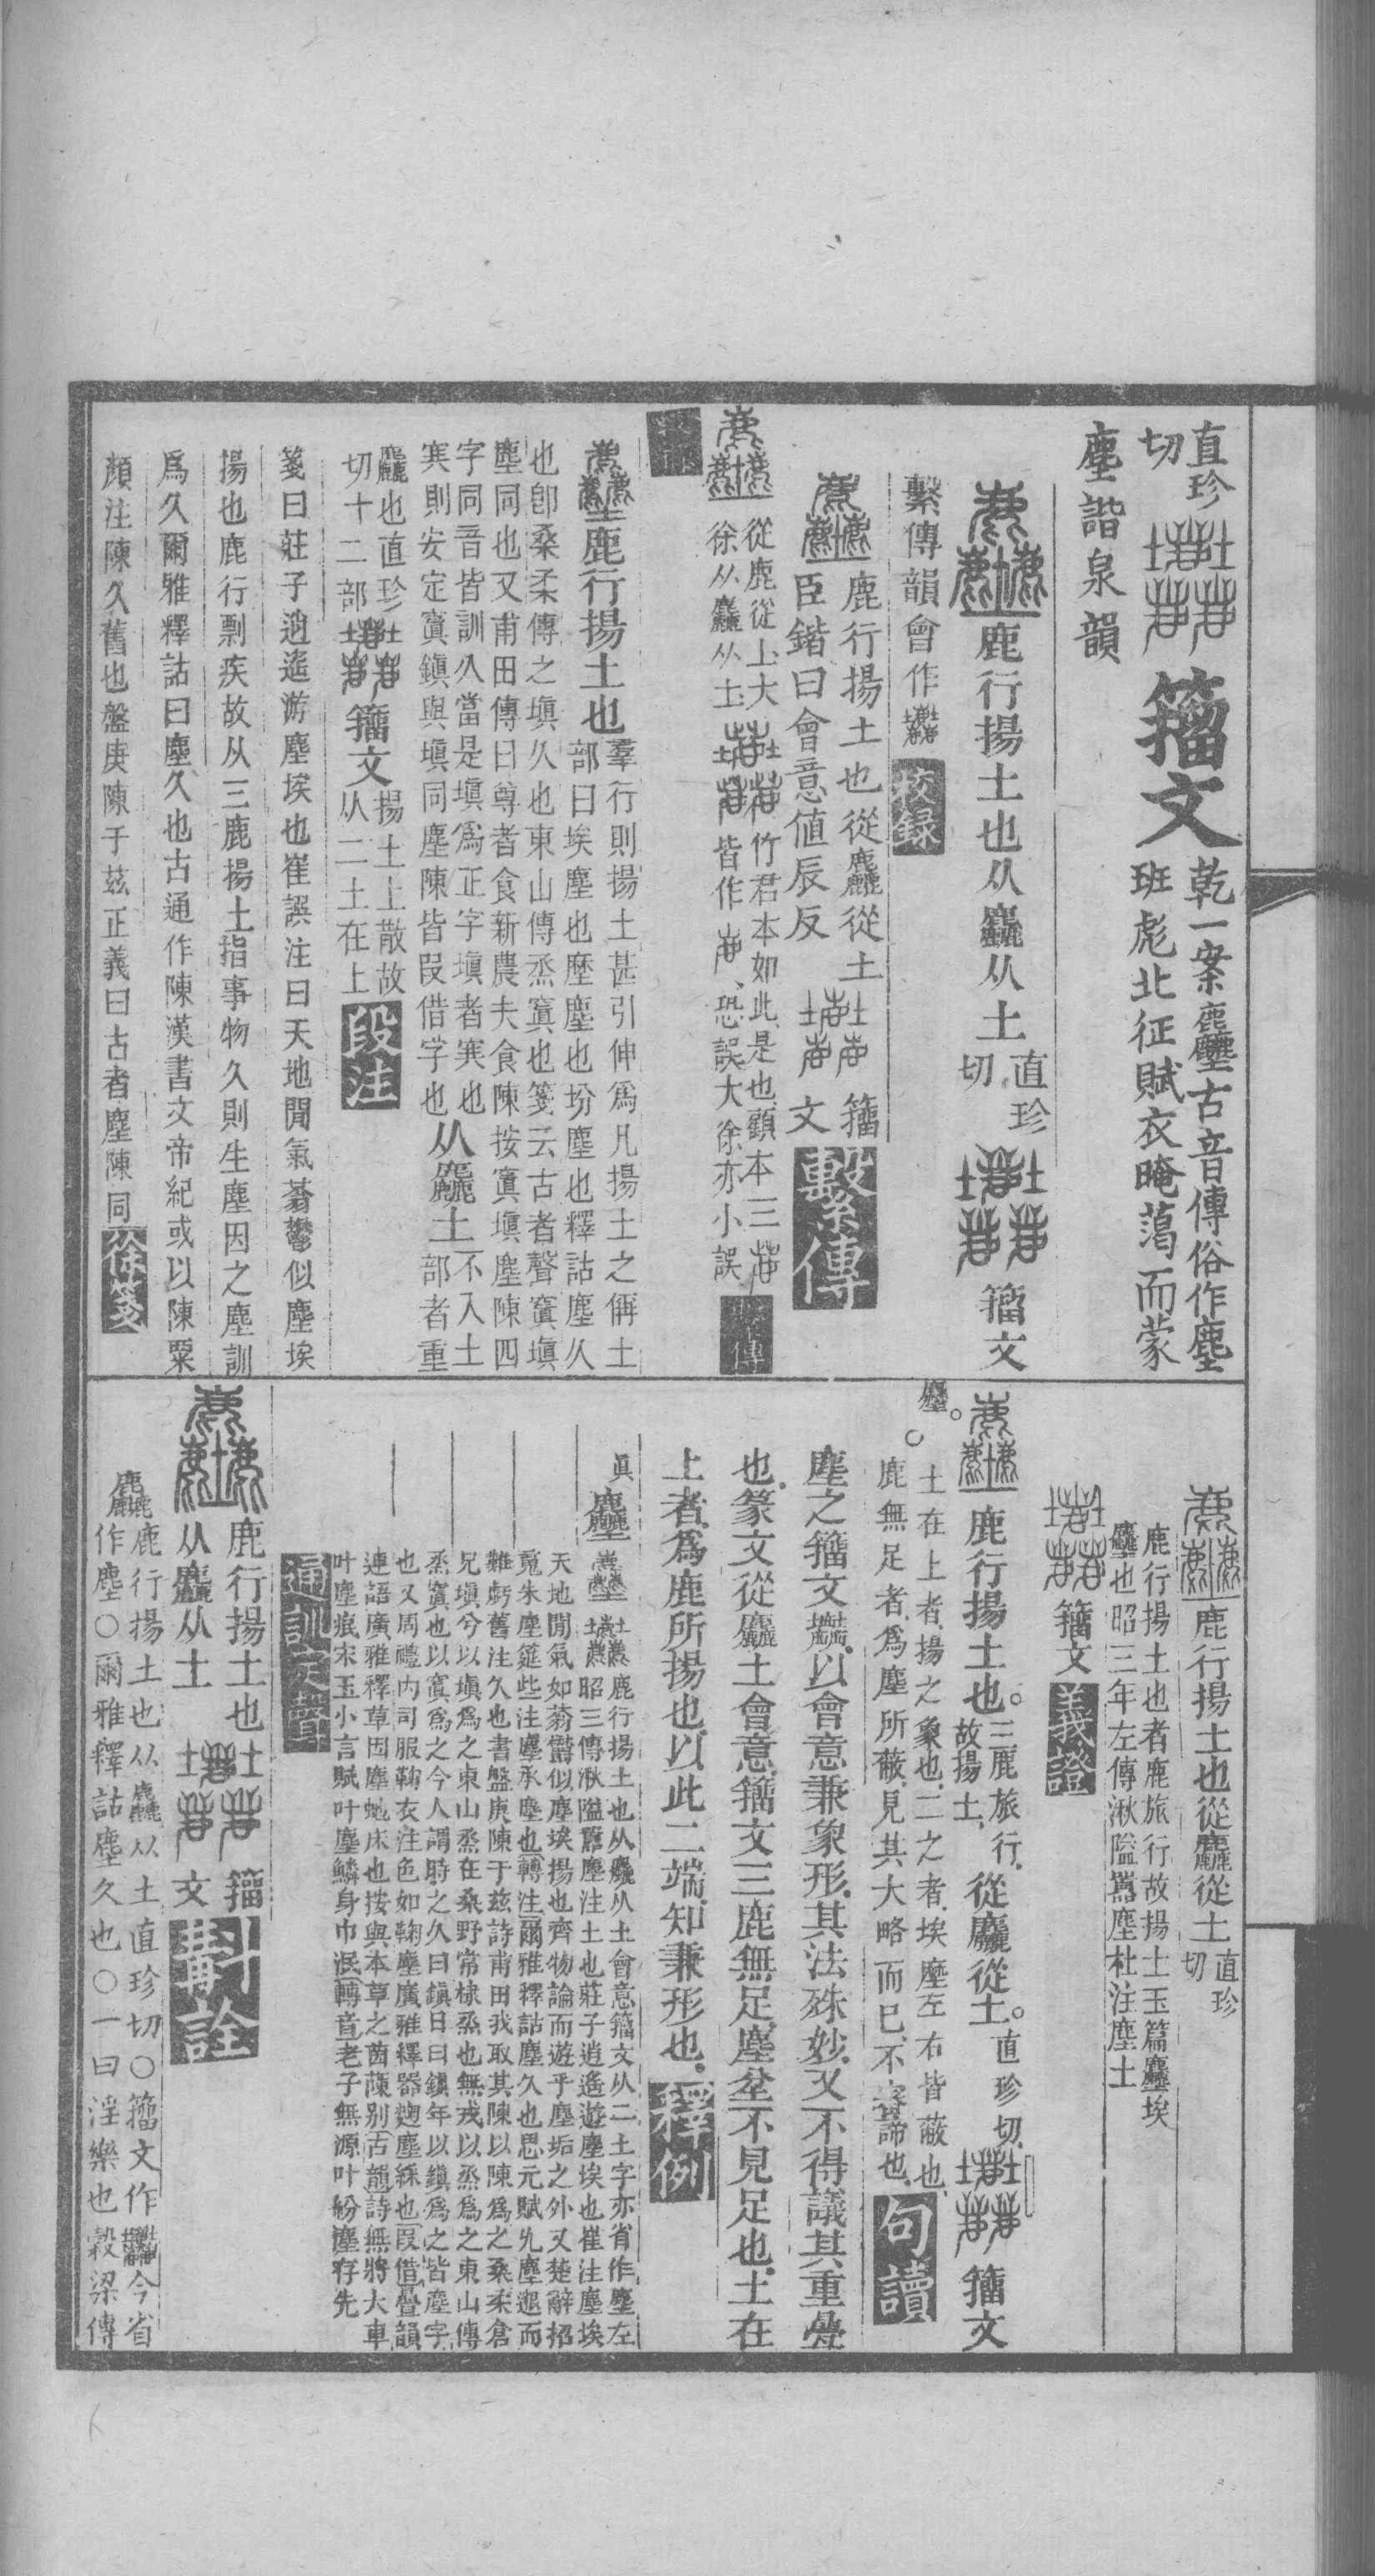 直珍
切
籒文
乾一案𪋻古音傳俗作塵
班彪北征賦衣晻藹而蒙
塵諧泉韻
鹿行揚土也从麤从土
直珍
切
籒文
繫傳韻會作
校録
鹿行揚土也從麤從土
臣鍇曰會意値辰反
籒
文
繫傳
從鹿從土大
徐从麤从土
竹君本如此是也顧本三
皆作
恐誤大徐亦小誤
鹿行揚土也
羣行則揚土甚引伸爲凡揚土之偁土
部曰埃塵也㙻塵也坋塵也釋詁塵久
也卽桑柔傳之塡久也東山傳烝窴也箋云古者聲窴塡
塵同也又甫田傳曰尊者食新農夫食陳按窴塡塵陳四
字同音皆訓久當是塡爲正字塡者寘也
寘則安定窴鎭與塡同塵陳皆叚借字也
从麤土
不入土
部者重
麤也直珍
切十二部
籒文
揚土上散故
从二土在上
段注
箋曰莊子逍遙游塵埃也崔譔注曰天地閒氣蓊鬱似塵埃
揚也鹿行剽疾故从三鹿揚土指事物久則生塵因之塵訓
爲久爾雅釋詁曰塵久也古通作陳漢書文帝紀或以陳粟
顏注陳久舊也盤庚陳于茲正義曰古者塵陳同
徐箋
鹿行揚土也從麤從土
直珍
切
鹿行揚土也者鹿旅行故揚土玉篇塵埃
𪋻也昭三年左傳湫隘嚻塵杜注塵土
籒文
義證
鹿行揚土也。
三鹿旅行
故揚土
從麤從土。
直珍切
籒文
𪋻。
○土在上者揚之象也二之者埃塵左右皆蔽也
鹿無足者爲塵所蔽見其大略而已不審諦也
句讀
塵之籒文以會意兼象形其法殊妙又不得議其重疊
也篆文從麤土會意籒文三鹿無足塵坌不見足也土在
上者爲鹿所揚也以此二端知兼形也
釋例
眞
𪋻
鹿行揚土也从麤从土會意籒文从二土字亦省作塵左
昭三傳湫隘嚻塵注土也莊子逍遙遊塵埃也崔注塵埃
天地閒氣如蓊鬱似塵埃揚也齊物論而遊乎塵垢之外又楚辭招
䰟朱塵筵些注塵承塵也轉注爾雅釋詁塵久也思元賦允塵邈而
難虧舊注久也書盤庚陳于茲詩甫田我取其陳以陳爲之桑柔倉
兄塡兮以塡爲之東山烝在桑野常棣烝也無戎以烝爲之東山傳
烝窴也以窴爲之今人謂時之久曰鎭日曰鎭年以鎭爲之皆塵字
也又周禮內司服鞠衣注色如鞠塵廣雅釋器麴塵綵也叚借疊韻
連語廣雅釋草因塵虵床也按與本草之茵蔯别古韻詩無將大車
叶塵疧宋玉小言賦叶塵鱗身巾泯轉音老子無源叶紛塵存先
通訓定聲
鹿行揚土也
从麤从土
籒
文
斠詮
鹿行揚土也从麤从土直珍切○籒文作
今省
作塵○爾雅釋詁塵久也○一曰淫樂也穀梁傳